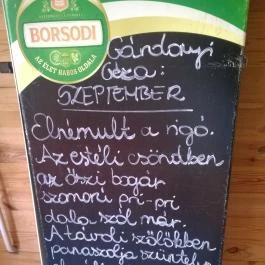 BORSODI
AZ ÉLET HABOS OLDALA
Gárdonyi
Géza:
SZEPTEMBER
Elnémult a rigó.
Az estéli csöndben
az őszi bogár
szomorú pri-pri
dala szól már.
A távoli szőlőkben
panaszolja szüntelen